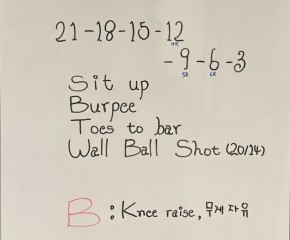 21-18-15-12
-9-6-3
Sit up
Burpee
Toes to bar
Wall Ball Shot (20/14)
B : Knee raise, 무게 자유